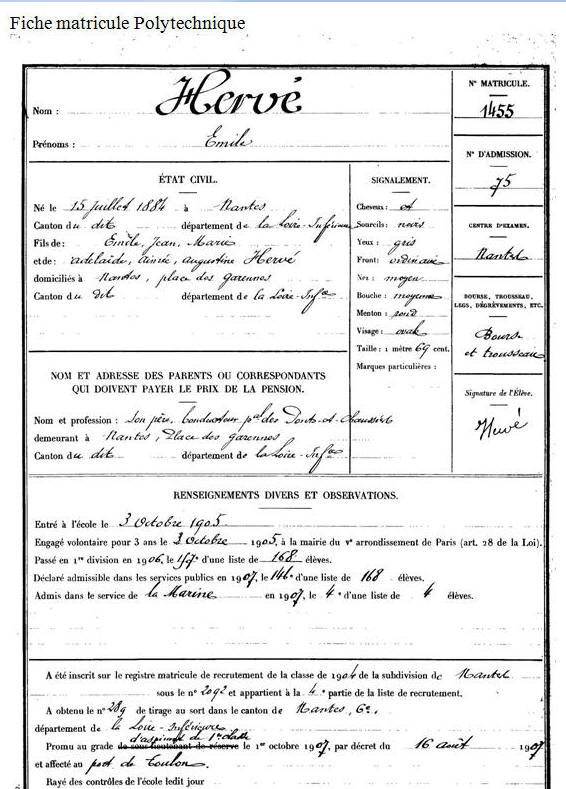 Fiche matricule Polytechnique
Nom : Hervé
Prénoms : Emile
N° MATRICULE.
1455
N° D'ADMISSION.
75
CENTRE D'EXAMEN.
Nantes
BOURSE, TROUSSEAU,
LEGS, DÉGRÈVEMENTS, ETC.
Bourse
et trousseau
Signature de l'Élève.
Hervé
ÉTAT CIVIL.
Né le 15 juillet 1884 à Nantes
Canton du dit département de la Loire-Inférieure
Fils de : Emile, Jean, Marie
et de : Adelaïde, Aimée, Augustine Hervé
domiciliés à Nantes, place des Garennes
Canton du dit département de la Loire-Infre
SIGNALEMENT.
Cheveux : et
Sourcils : noirs
Yeux : gris
Front : ordinaire
Nez : moyen
Bouche : moyenne
Menton : rond
Visage : ovale
Taille : 1 mètre 69 cent.
Marques particulières :
NOM ET ADRESSE DES PARENTS OU CORRESPONDANTS
QUI DOIVENT PAYER LE PRIX DE LA PENSION.
Nom et profession : Son père, Conducteur pal des Ponts-et-Chaussées
demeurant à Nantes, Place des Garennes
Canton du dit département de la Loire-Infre
RENSEIGNEMENTS DIVERS ET OBSERVATIONS.
Entré à l'école le 3 Octobre 1905
Engagé volontaire pour 3 ans le 3 Octobre 1905, à la mairie du Ve arrondissement de Paris (art. 28 de la Loi).
Passé en 1re division en 1906, le e d'une liste de 168 élèves.
Déclaré admissible dans les services publics en 1907, le 146e d'une liste de 168 élèves.
Admis dans le service de la Marine en 1907, le 4e d'une liste de 4 élèves.
A été inscrit sur le registre matricule de recrutement de la classe de 1904 de la subdivision de Nantes
sous le n° 2092 et appartient à la 4e partie de la liste de recrutement.
A obtenu le n° 289 de tirage au sort dans le canton de Nantes, 6e.
département de la Loire-Inférieure
d'aspirant de 1re classe
Promu au grade de sous-lieutenant de réserve le 1er octobre 1907, par décret du 16 août 1907
et affecté au port de Toulon.
Rayé des contrôles de l'école ledit jour